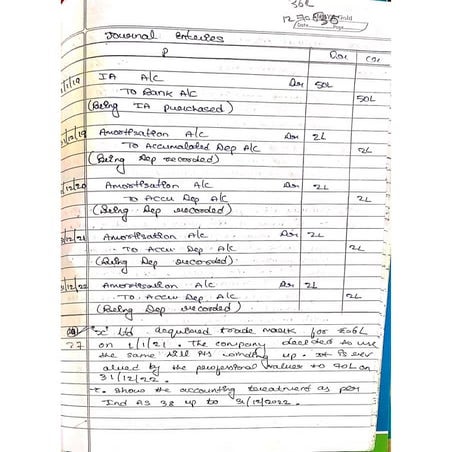 36L
Date Page
Journal Entries
P Dr Cr
1/1/19 IA A/c Dr 50L
To Bank A/c 50L
(Being IA purchased)
31/12/19 Amortisation A/c Dr 2L
To Accumalated Dep A/c 2L
(Being Dep recorded)
31/12/20 Amortisation A/c Dr 2L
To Accu Dep A/c 2L
(Being Dep recorded)
31/12/21 Amortisation A/c Dr 2L
To Accu Dep A/c 2L
(Being Dep recorded)
31/12/22 Amortisation A/c Dr 2L
To Accu Dep A/c 2L
(Being Dep recorded)
"X" Ltd acquired trade mark for
27 on 1/1/21. The company decided to use
the same till its winding up. It is rev
alued by the professional values to 40L on
31/12/22.
Show the accounting treatment as per
Ind AS 38 up to 31/12/2022.